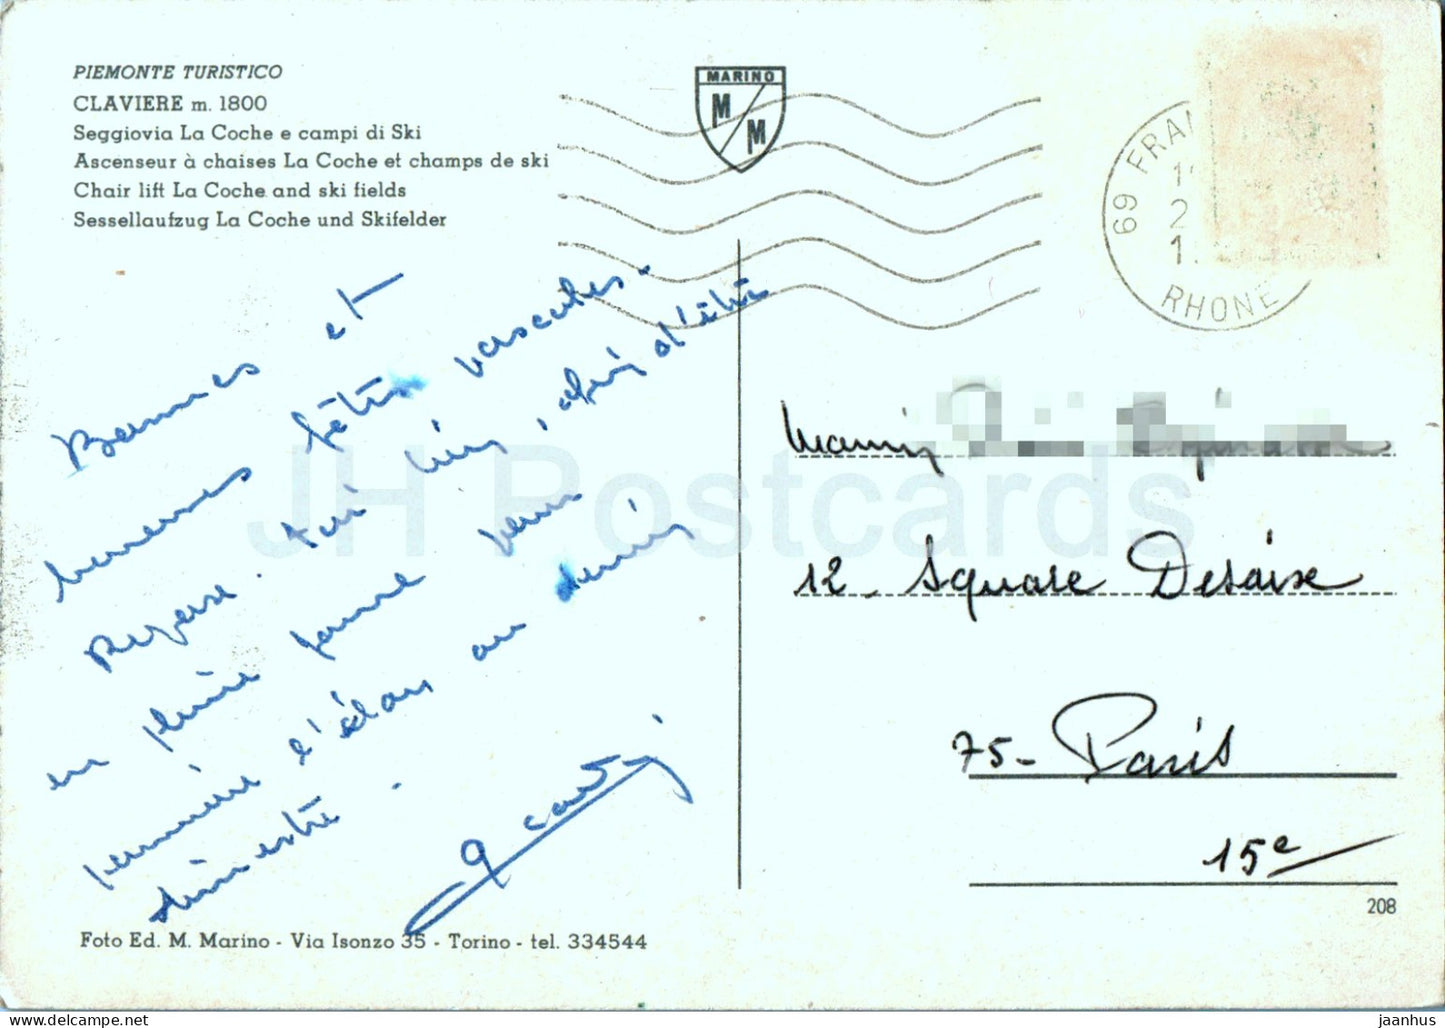 PIEMONTE TURISTICO
CLAVIERE m. 1800
Seggiovia La Coche e campi di Ski
Ascenseur à chaises La Coche et champs de ski
Chair lift La Coche and ski fields
Sessellaufzug La Coche und Skifelder
MARINO
M
M
69 FRAN
RHONE
Bonnes et
heureuses fêtes pascales.
Repose-toi bien, d'été
en pleine forme pour
l'élan du dernier
trimestre.
12 - Square Desaix
75 - Paris
15e
208
Foto Ed. M. Marino - Via Isonzo 35 - Torino - tel. 334544
JH Postcards
delcampe.net
jaanhus